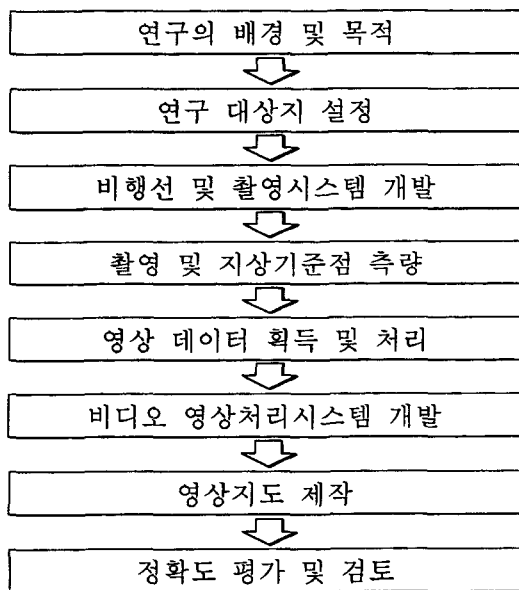 연구의 배경 및 목적
연구 대상지 설정
비행선 및 촬영시스템 개발
촬영 및 지상기준점 측량
영상 데이터 획득 및 처리
비디오 영상처리시스템 개발
영상지도 제작
정확도 평가 및 검토